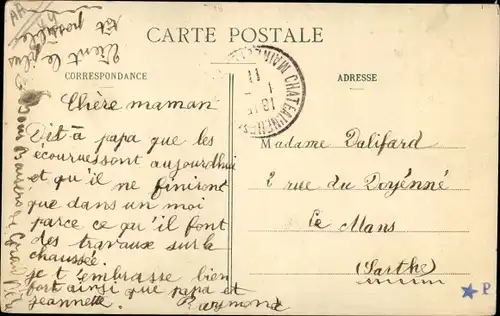 CARTE POSTALE
CORRESPONDANCE
ADRESSE
Vient le plus
tôt possible
Chère maman
Dit à papa que les
écour issont aujourdhui
et qu'il ne finiront
que dans un moi
parce ce qu'il font
des travaux sur la
chaussée.
je t'embrasse bien
fort ainsi que papa et
jeannette. Raymond
Bons Baisers de
Madame Dalifard
2 rue du Doyénné
Le Mans
(Sarthe)
P